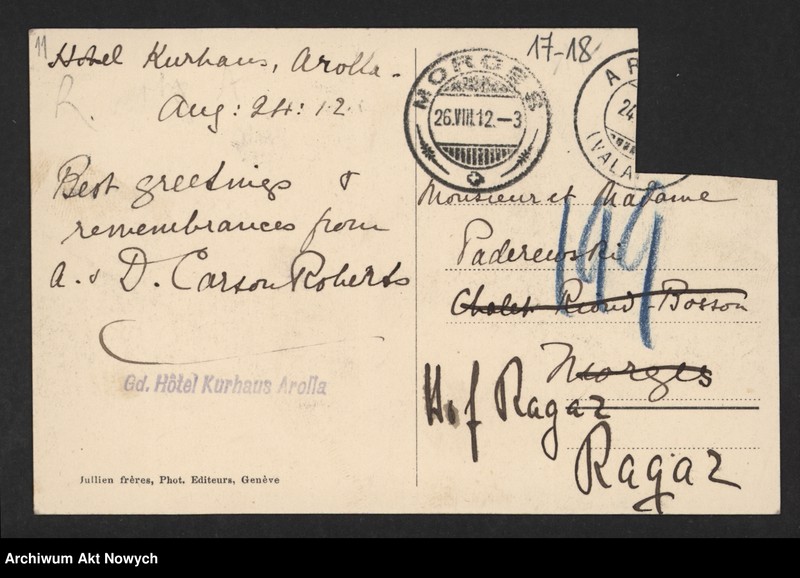 11
Hotel Kurhaus, Arolla.
Aug: 24: 12.
R.
Best greetings &
remembrances from
A. & D. Carson Roberts
Gd. Hôtel Kurhaus Arolla
Jullien frères, Phot. Editeurs, Genève
17-18
MORGES
26.VIII.12.-3
AR
24
(VALA
Monsieur et Madame
Paderewski
199
Chalet Riond-Bosson
Morges
Hof Ragaz
Ragaz
Archiwum Akt Nowych